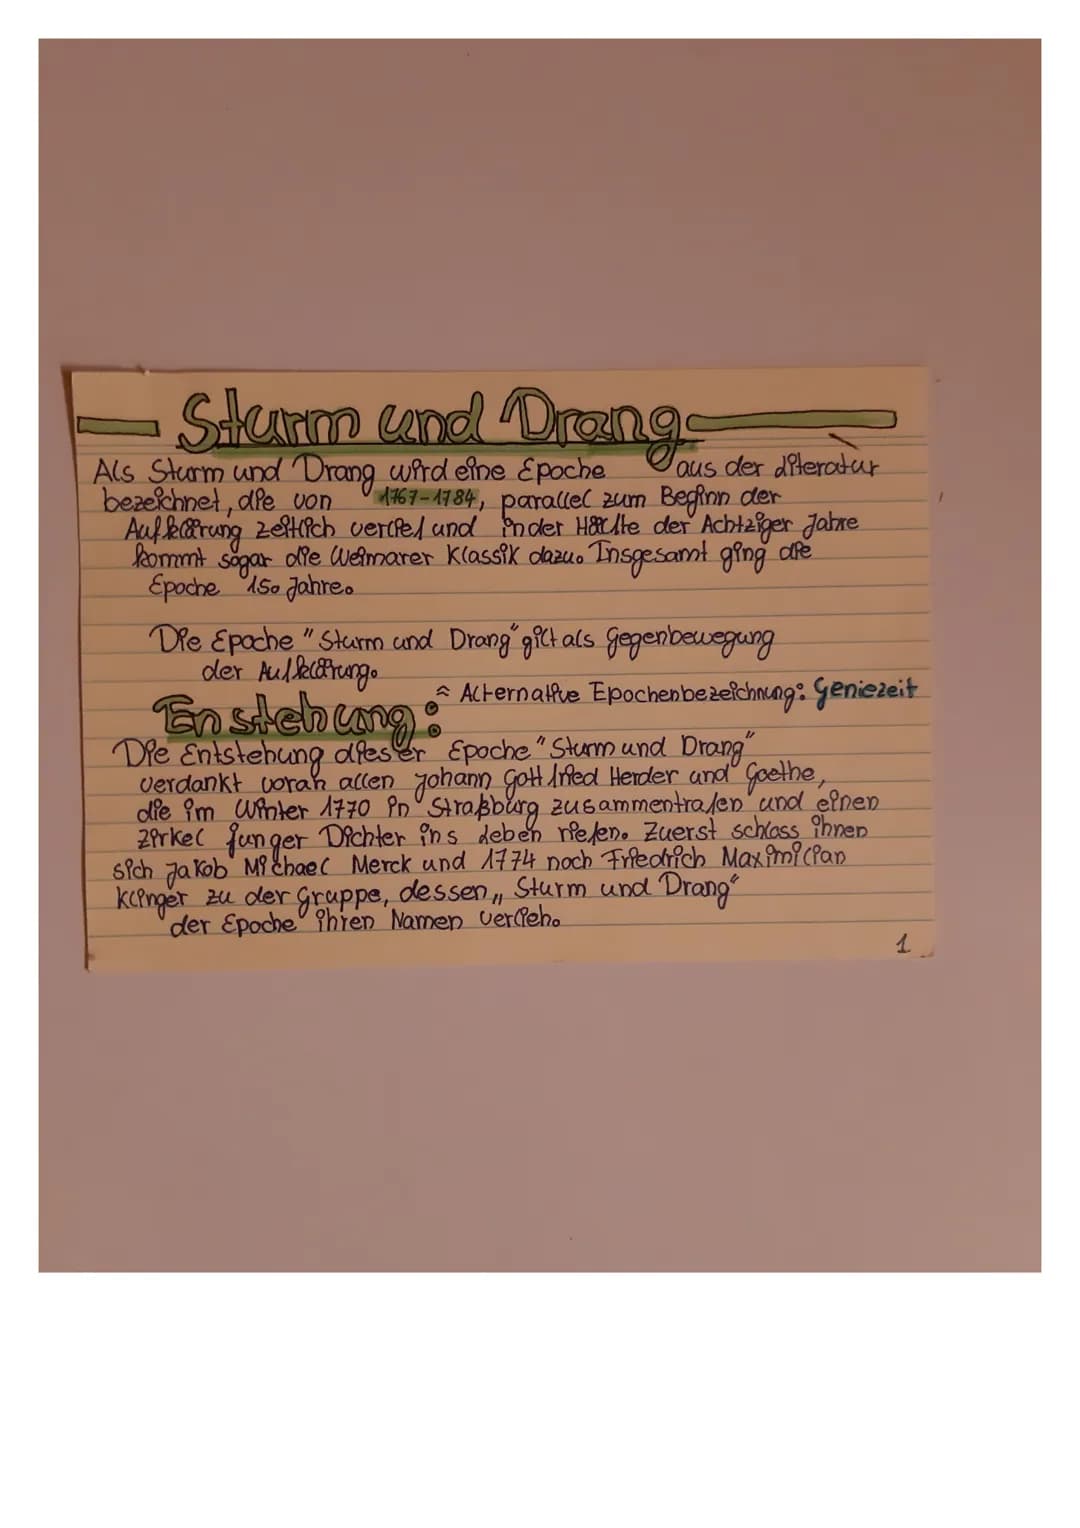 Sturm und Drang
Als Sturm und Drang wird eine Epoche aus der Literatur
bezeichnet, die von 1767-1784, parallel zum Beginn der
Aufklärung zeitlich verlief und in der Hälfte der Achtziger Jahre
kommt sogar die Weimarer Klassik dazu. Insgesamt ging die
Epoche 150 Jahre.
Die Epoche "Sturm und Drang" gilt als Gegenbewegung
der Aufklärung.
≈ Alternative Epochenbezeichnung: Geniezeit
Enstehung:
Die Entstehung dieser Epoche "Sturm und Drang"
verdankt voran allen Johann Gottfried Herder und Goethe,
die im Winter 1770 in Straßburg zusammentrafen und einen
Zirkel junger Dichter ins Leben riefen. Zuerst schloss ihnen
sich Jakob Michael Merck und 1774 noch Friedrich Maximilian
Klinger zu der Gruppe, dessen „Sturm und Drang"
der Epoche ihren Namen verlieh.
1